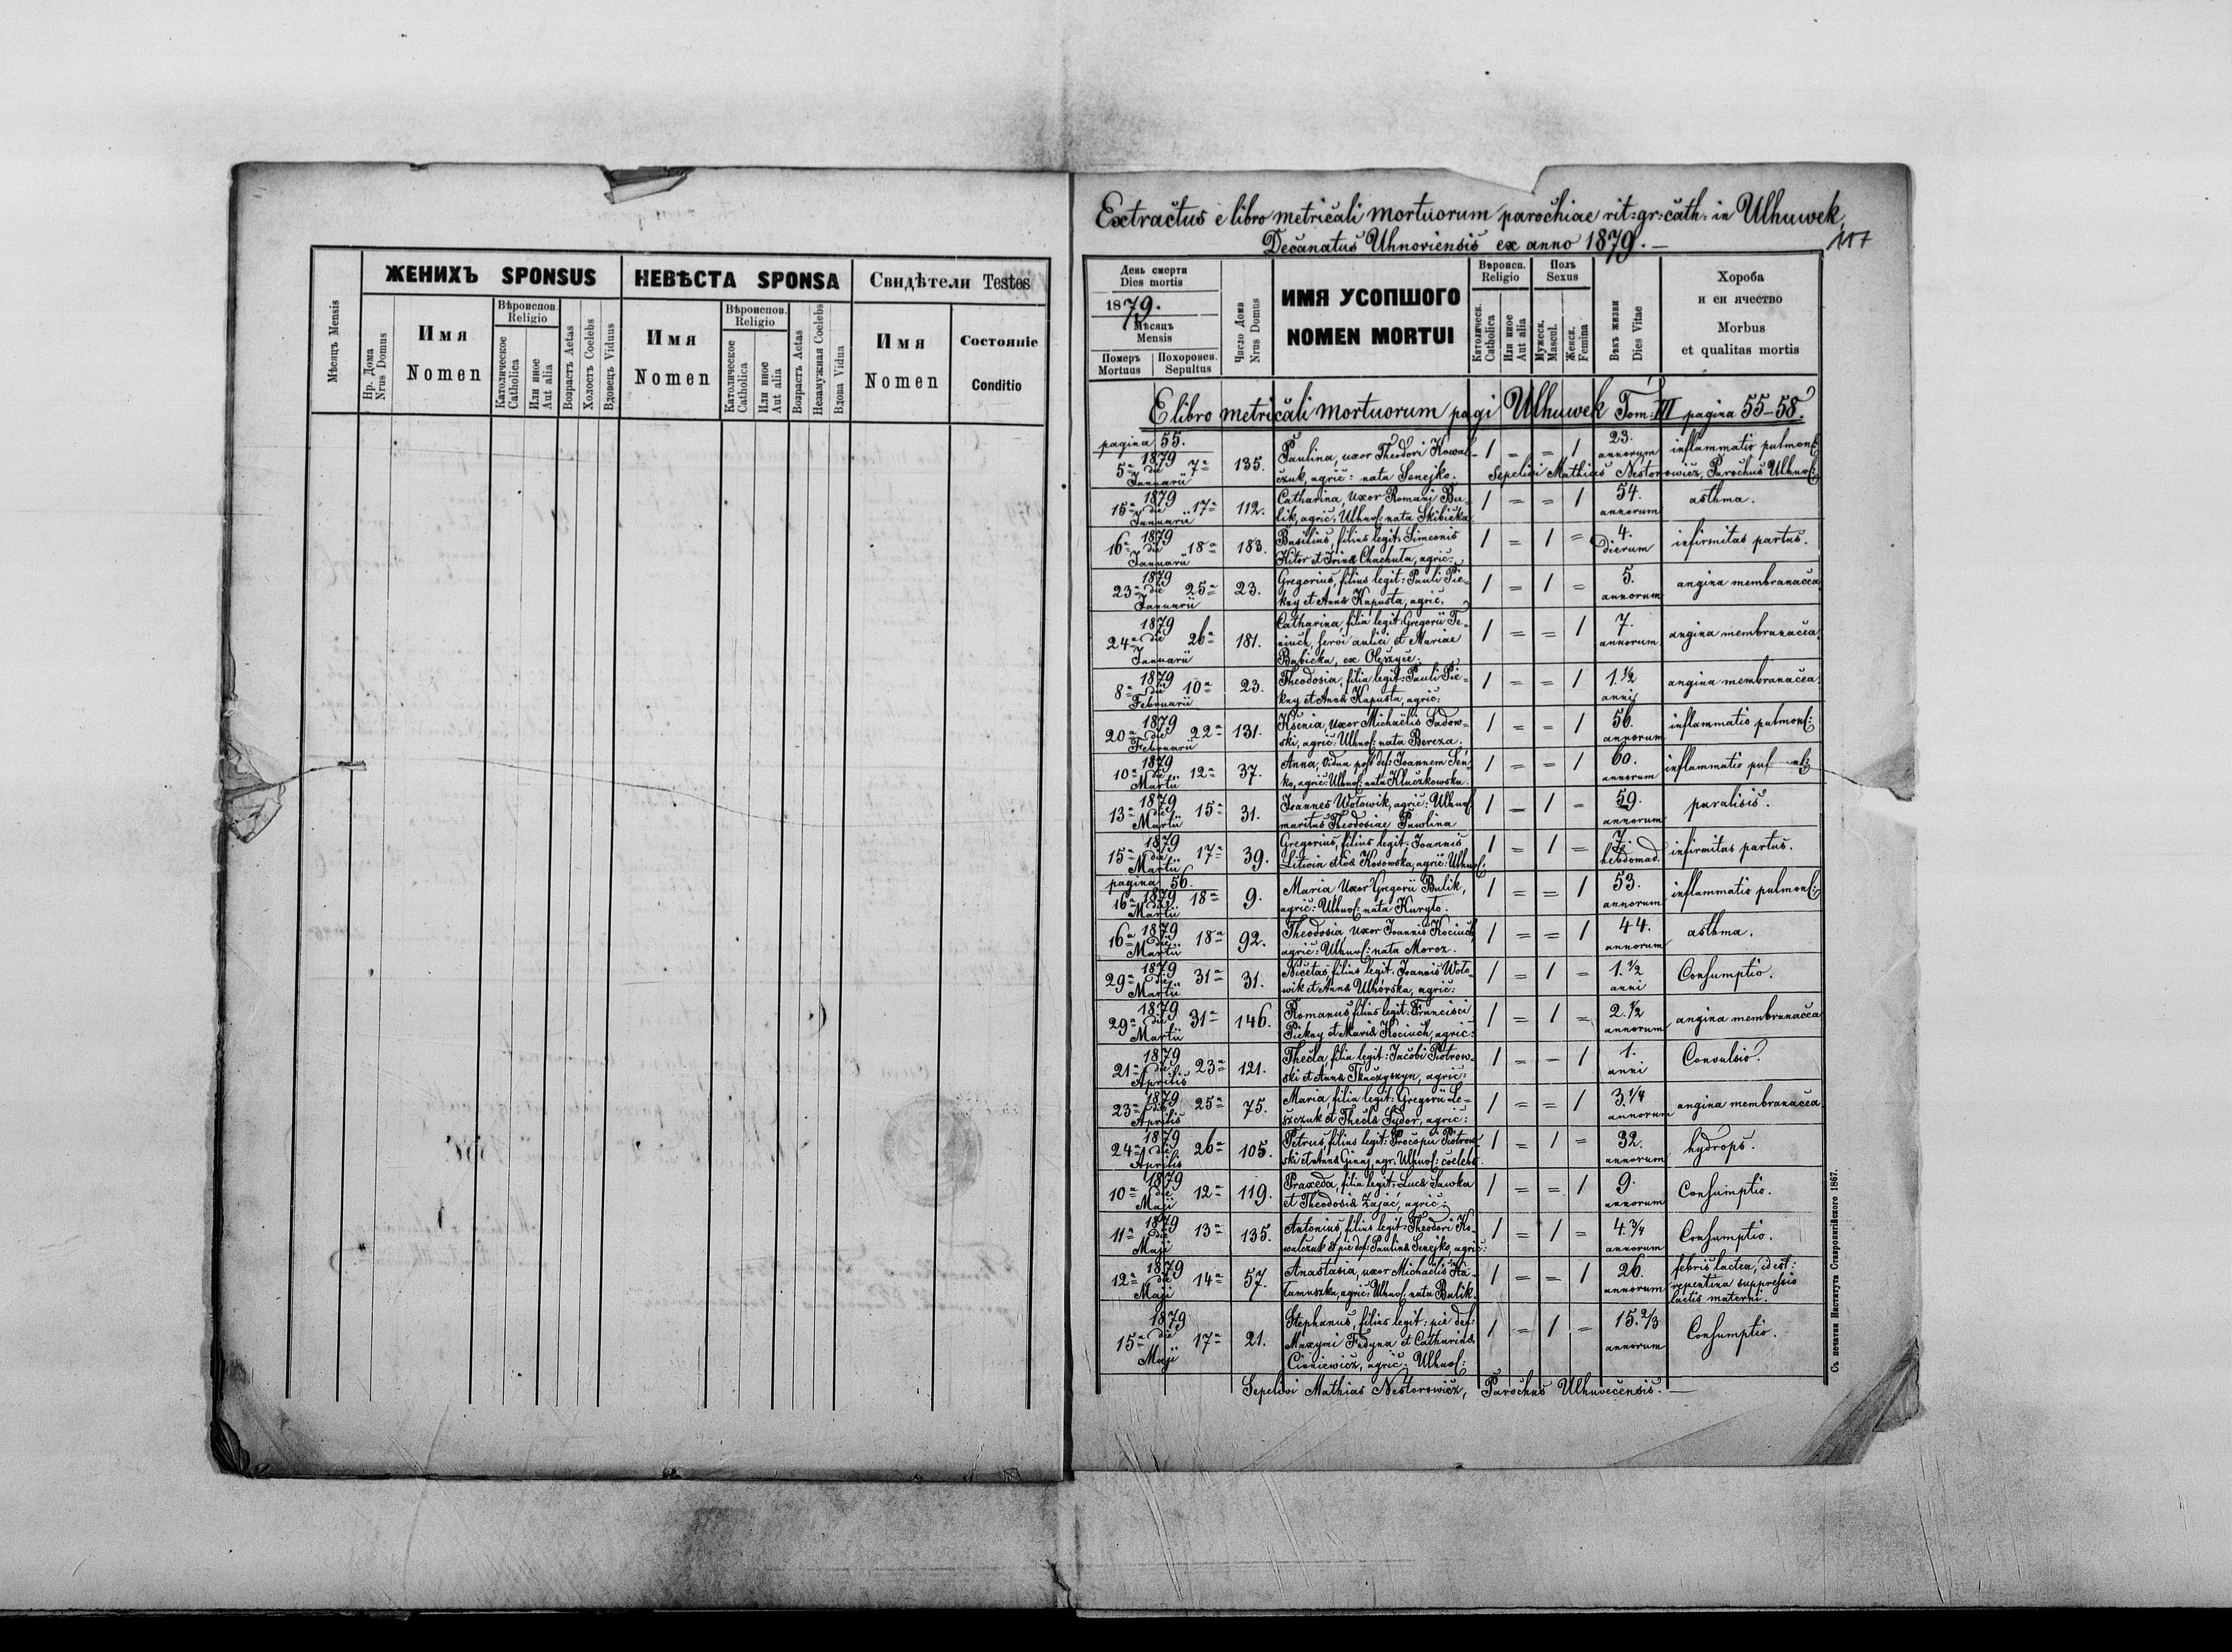 ЖЕНИХЪ SPONSUS
НЕВѢСТА SPONSA
Свидѣтели Testes
Мѣсяцъ Mensis
Нр. Дома
Nrus Domus
Имя
Nomen
Вѣроиспов.
Religio
Католическое
Catholica
Или иное
Aut alia
Возрастъ Aetas
Холостъ Coelebs
Вдовецъ Viduus
Имя
Nomen
Вѣроиспов.
Religio
Католическое
Catholica
Или иное
Aut alia
Возрастъ Aetas
Незамужная Coelebs
Вдова Vidua
Имя
Nomen
Состояніе
Conditio
Extractus e libro metricali mortuorum parochiae rit: gr: cath: in Ulhuwek,
Decanatus Uhnoviensis ex anno 1879. —
117
День смерти
Dies mortis
1879.
Мѣсяцъ
Mensis
Померъ
Mortuus
Похоронен.
Sepultus
Число Дома
Nrus Domus
ИМЯ УСОПШОГО
NOMEN MORTUI
Вѣроисп.
Religio
Католическ.
Catholica
Или иное
Aut alia
Полъ
Sexus
Мужеск.
Mascul.
Женск.
Femina
Вѣкъ жизни
Dies Vitae
Хороба
и еи ячество
Morbus
et qualitas mortis
E libro metricali mortuorum pagi Ulhuwek Tom: III pagina 55-58.
pagina 55.
1879
5a die 7a 135. Paulina, uxor Theodori Kowal- 1 = = 1 23. annorum inflammatio pulmon:
Januarii czuk, agric: nata Senejko. Sepelivi Mathias Nestorowicz, Parochus Ulhuv:
1879
15a die 17a 112. Catharina, uxor Romani Bu- 1 = = 1 54. asthma.
Januarii lik, agric: Ulhuv: nata Skibicka annorum
1879
16a die 18a 183. Basilius, filius legit: Simeonis 1 = 1 = 4. infirmitas partus.
Januarii Kitor et Irina Chachuta, agric: dierum
1879
23a die 25a 23. Gregorius, filius legit: Pauli Pie- 1 = 1 = 5. angina membranacea
Januarii kny et Anna Kapusta, agric. annorum
1879
24a die 26a 181. Catharina, filia legit: Gregorii Te- 1 = = 1 7. angina membranacea
Januarii niuch, servi aulici et Mariae annorum
Babicka, ex Oleszyce.
1879
8a die 10a 23. Theodosia, filia legit: Pauli Pie- 1 = = 1 1.½ angina membranacea
Februarii kny et Anna Kapusta, agric: anni
1879
20a die 22a 131. Ksenia, uxor Michaëlis Sadow- 1 = = 1 56. inflammatio pulmon:
Februarii ski, agric: Ulhuv: nata Bereza. annorum
1879
10a die 12a 37. Anna, vidua post def: Joannem Sen- 1 = = 1 60. inflammatio
Martii ko, agric: Ulhuv: nata Kluczkowska. annorum
1879
13a die 15a 31. Joannes Wołowik, agric: Ulhuv: 1 = 1 = 59. paralisis.
Martii maritus Theodosiae Pawlina annorum
1879
15a die 17a 39. Gregorius, filius legit: Joannis 1 = 1 = 7. infirmitas partus.
Martii Litwin et Eva Kosowska, agric: Ulhuv: hebdomad.
pagina 56.
16a 1879 die 18a 9. Maria uxor Gregorii Bulik, 1 = = 1 53. inflammatio pulmon:
Martii agric: Ulhuv: nata Kuryło. annorum
1879
16a die 18a 92. Theodosia uxor Joannis Kociuch 1 = = 1 44. asthma.
Martii agric: Ulhuv: nata Moroz. annorum
1879
29a die 31a 31. Nicetas, filius legit: Joannis Woło- 1 = 1 = 1.½ Consumptio.
Martii wik et Anna Uhorska, agric: anni
1879
29a die 31a 146. Romanus filius legit: Francisci 1 = 1 = 2.½ angina membranacea
Martii Piekny et Maria Kociuch, agric: annorum
1879
21a die 23a 121. Thecla, filia legit: Jacobi Piotrow- 1 = = 1 1. Convulsio.
Aprilis ski et Anna Tkaczyszyn, agric: anni
1879
23a die 25a 75. Maria, filia legit: Gregorii Le- 1 = = 1 3.¼ angina membranacea
Aprilis szczuk et Thecla Sydor, agric: annorum
1879
24a die 26a 105. Petrus, filius legit: Procopii Piotrow- 1 = 1 = 32. hydrops.
Aprilis ski et Anna agr. Ulhuv: coelebs. annorum
1879
10a die 12a 119. Praxeda, filia legit: Luca Sawka 1 = = 1 9. Consumptio.
Maji et Theodosia Zając, agric: annorum
1879
11a die 13a 135. Antonius, filius legit: Theodori Ko- 1 = 1 = 4.¾ Consumptio.
Maji walczuk et pie def: Paulina Senejko, agric: annorum
1879
12a die 14a 57. Anastasia, uxor Michaëlis Ha- 1 = = 1 26. febris lactea, id est:
Maji łamuszka, agric: Ulhuv: nata Bulik. annorum repentina suppressio
lactis materni.
1879
15a die 17a 21. Stephanus, filius legit: pie def: 1 = 1 = 15.⅔ Consumptio.
Maji Maxymi Fedyna et Catharina annorum
agric: Ulhuv:
Sepelivi Mathias Nestorowicz, Parochus Ulhuvecensis. —
Съ печатни Института Ставропигійского 1867.